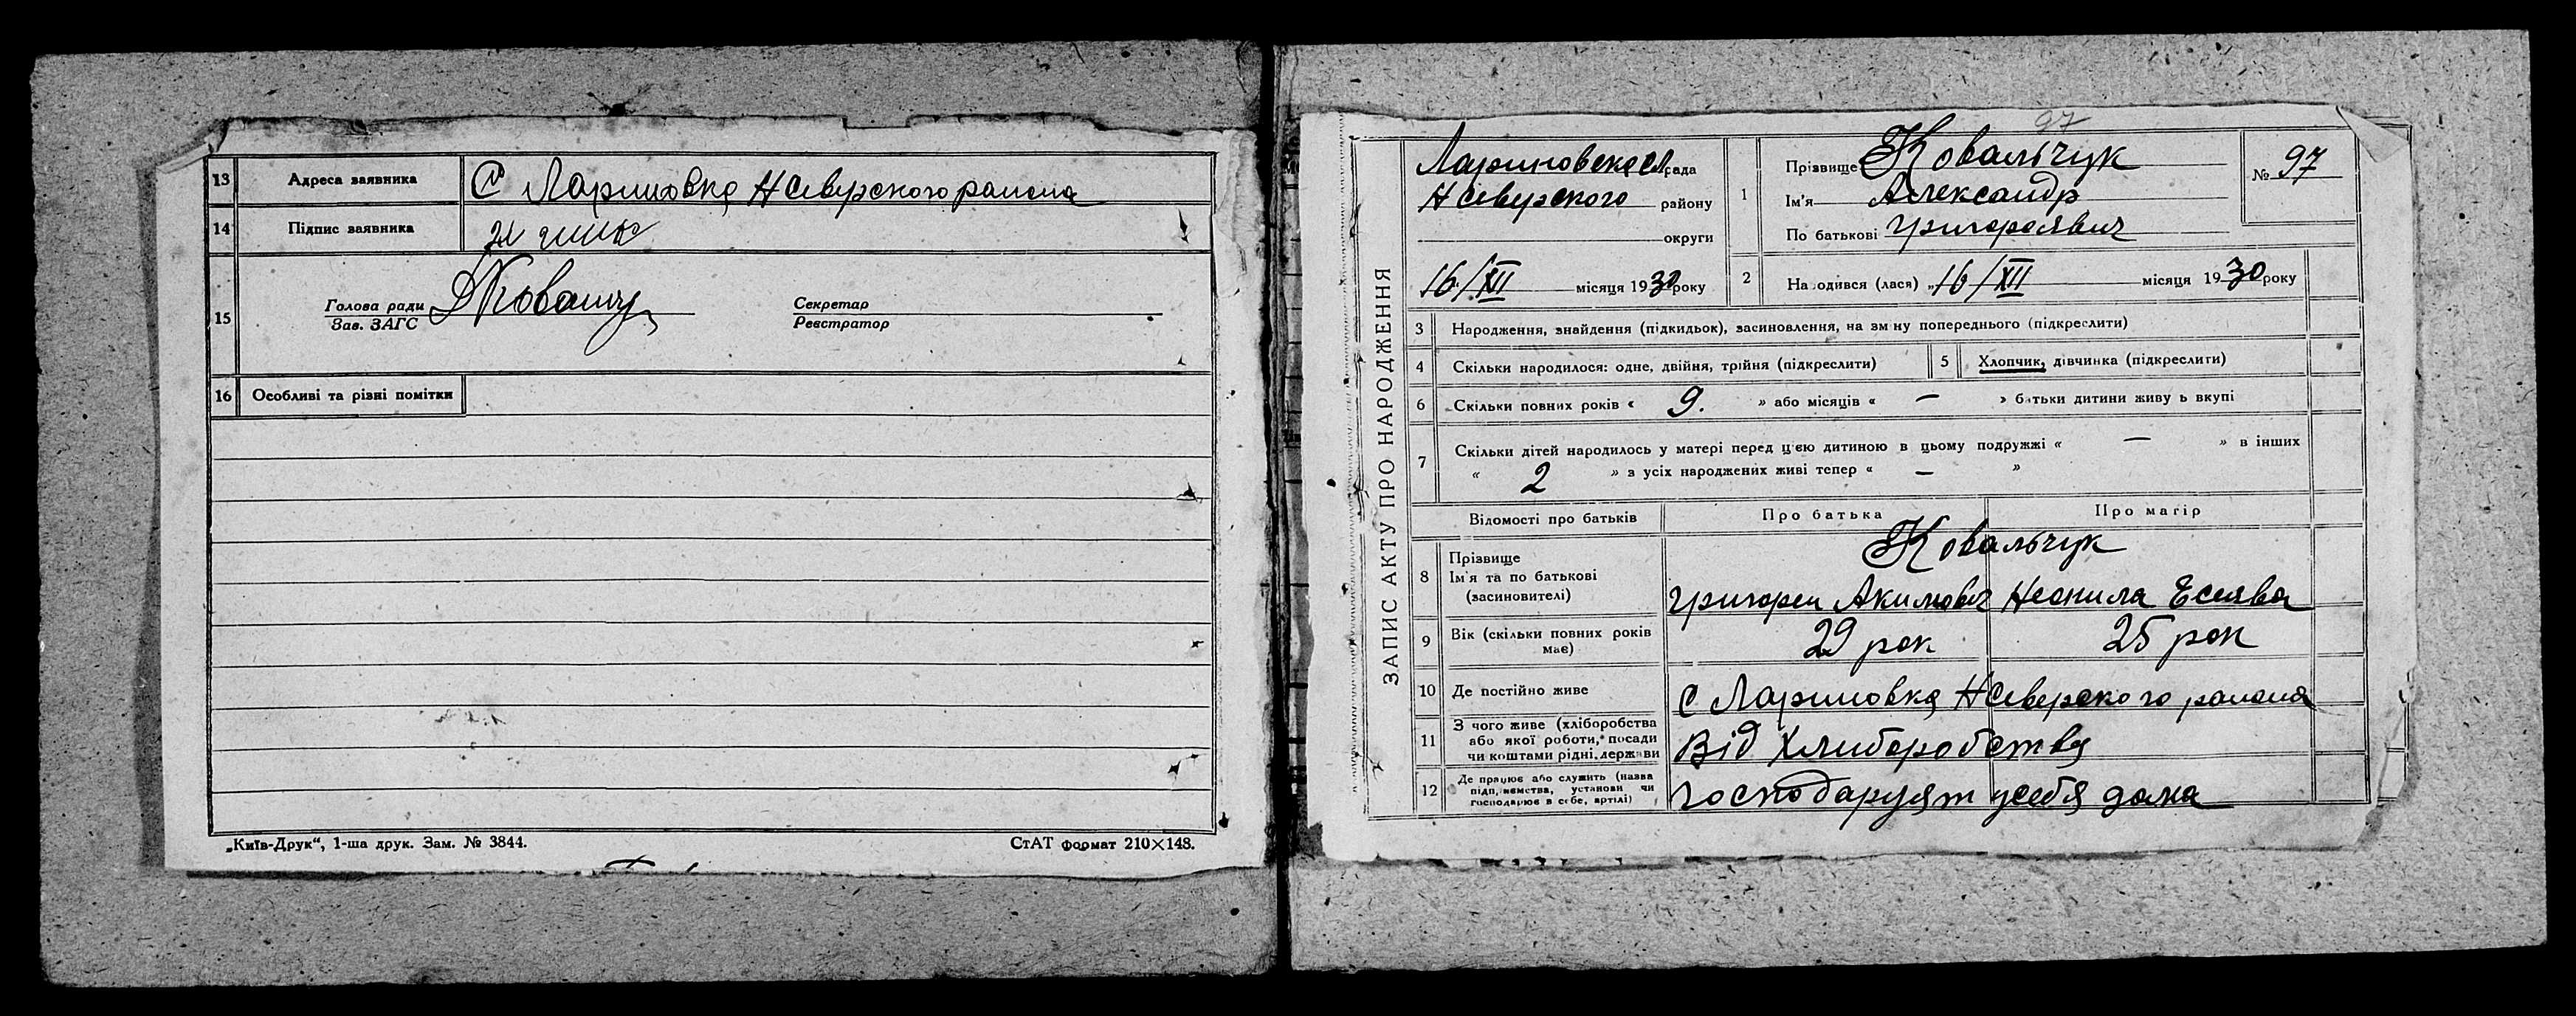 13 Адреса заявника С Лариновка Н Северского раиона
14 Підпис заявника
15 Голова ради Секретар
Зав. ЗАГС Реєстратор
16 Особливі та різні помітки
„Київ-Друк“, 1-ша друк. Зам. № 3844. СтАТ формат 210×148.
97
ЗАПИС АКТУ ПРО НАРОДЖЕННЯ
рада
Н Северского району
округи
16/XII місяця 1930 року
1 Прізвище Ковальчук
Ім'я Александр
По батькові Григорович
№ 97
2 На одився (лася) „16/XII місяця 1930 року
3 Народження, знайдення (підкидьок), засиновлення, на зм ну попереднього (підкреслити)
4 Скільки народилося: одне, двійня, трійня (підкреслити)
5 Хлопчик, дівчинка (підкреслити)
6 Скільки повних років « 9. » або місяців « — » батьки дитини живу ь вкупі
7 Скільки дітей народилось у матері перед цією дитиною в цьому подружжі « — » в інших
« 2 » з усіх народжених живі тепер « — »
Відомості про батьків Про батька Про матір
8 Прізвище Ковальчук
Ім'я та по батькові
(засиновителі) Григореи Акимович Неонила
9 Вік (скільки повних років
має) 29 рок 25 рок
10 Де постійно живе С Лариновка Н Северского раиона
11 З чого живе (хліборобства
або якої роботи, посади
чи коштами рідні, держави Від Хлиборобства
12 Де працює або служить (назва
підп, иємства, установи чи
господарює в себе, артілі) Господаруят усебя дома